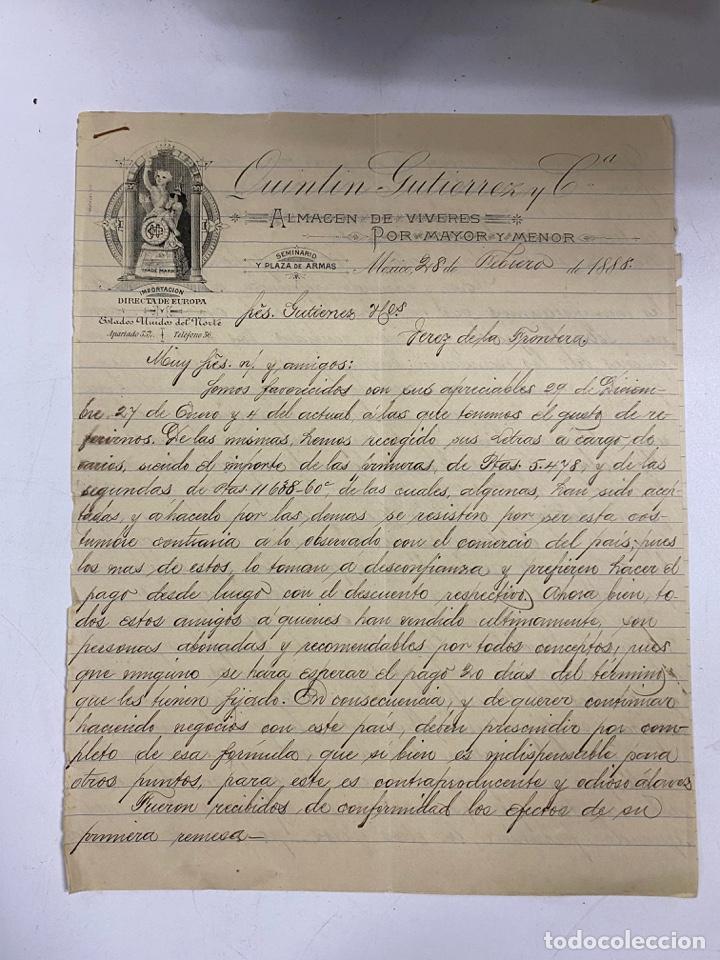 Quintin Gutierrez y Cª
ALMACEN DE VIVERES
POR MAYOR Y MENOR
SEMINARIO
Y PLAZA DE ARMAS
México, 28 de Febrero de 1888.
TRADE MARK
IMPORTACION
DIRECTA DE EUROPA
Y
Estados Unidos del Norte
Apartado Teléfono
Sres. Gutierrez Hos
Jerez de la Frontera.
Muy Sres. n/ y amigos:
Somos favorecidos con sus apreciables 29 de Diciem-
bre 27 de Enero y 4 del actual, a las que tenemos el gusto de re-
ferirnos. De las mismas, hemos recogido sus letras a cargo de
varios, siendo el importe de las primeras, de Ptas. 5.478, y de las
segundas de Ptas. 11638-60, de las cuales, algunas, han sido acep-
tadas, y a hacerlo por las demas se resisten por ser esta cos-
tumbre contraria a lo observado con el comercio del país; pues
los mas de estos, lo toman a desconfianza y prefieren hacer el
pago desde luego con el descuento respectivo. Ahora bien, to-
dos estos amigos a quienes han vendido ultimamente, son
personas abonadas y recomendables por todos conceptos; pues
que ninguno se hara esperar el pago 20 dias del término
que les tienen fijado. En consecuencia, y de querer continuar
haciendo negocios con este país, deben prescindir por com-
pleto de esa formula, que si bien es indispensable para
otros puntos, para este es contraproducente y odioso á la vez
Fueron recibidos de conformidad los efectos de su
primera remesa—
todocoleccion
todocoleccion.net